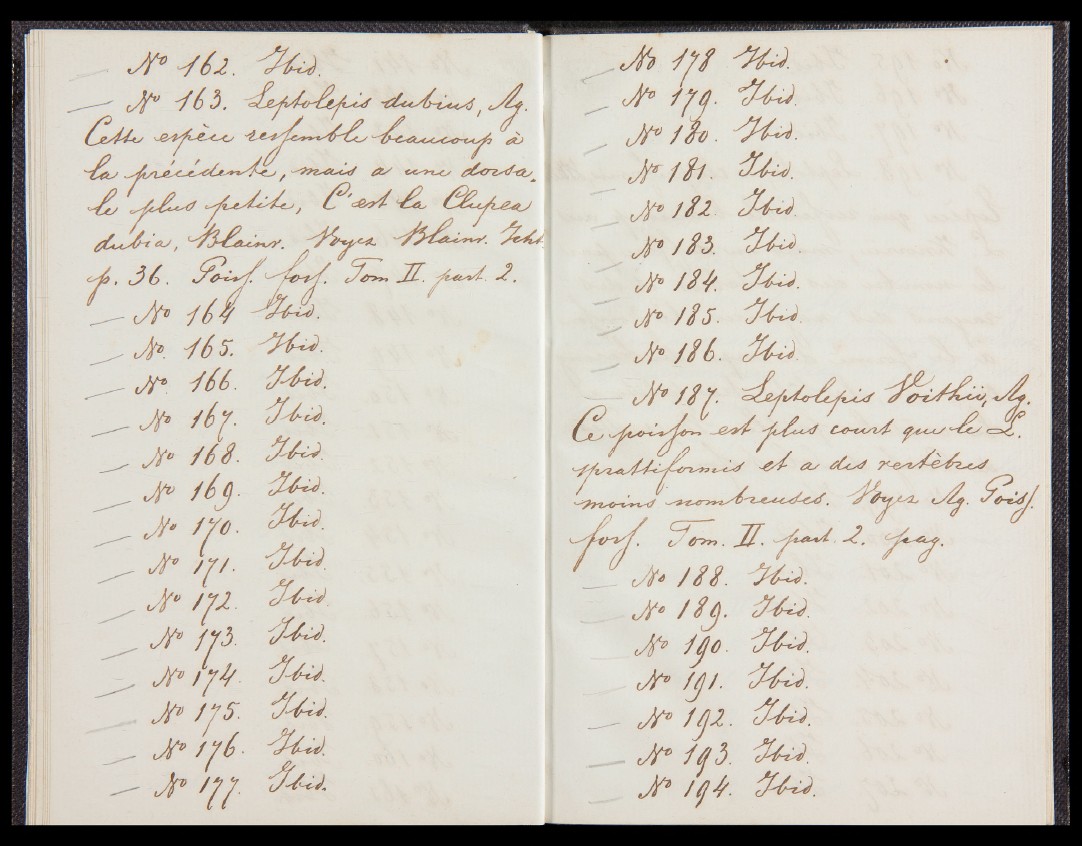 — No 162. Ibid.
— No 163. Leptolepis dubius, Ag.
Cette espèce ressemble beaucoup à
la précédente, mais a une dorsa-
le plus petite, C'est la Clupea
dubia, Blainv. Voyez Blainv. Icht.
p. 36. Poiss. foss. Tom II. part. 2.
— No 164 Ibid.
— No. 165. Ibid.
— No 166. Ibid.
— No 167. Ibid.
— No 168. Ibid.
— No 169. Ibid.
— No 170. Ibid.
— No 171. Ibid.
— No 172. Ibid
— No 173. Ibid.
— No 174. Ibid.
— No 175. Ibid.
— No 176. Ibid.
— No 177. Ibid.
— No 178 Ibid.
— No 179. Ibid.
— No 180. Ibid.
— No 181. Ibid.
— No 182. Ibid.
— No 183. Ibid
— No 184. Ibid.
— No 185. Ibid.
— No 186. Ibid.
— No 187. Leptolepis Voithii, Ag.
Ce poisson est plus court que le L.
sprattiformis et a des vertèbres
moins nombreuses. Voyez Ag. Poiss.
foss. Tom. II. part. 2. pag.
— No 188. Ibid.
— No 189. Ibid.
— No 190. Ibid.
— No 191. Ibid.
— No 192. Ibid.
— No 193. Ibid.
— No 194. Ibid.